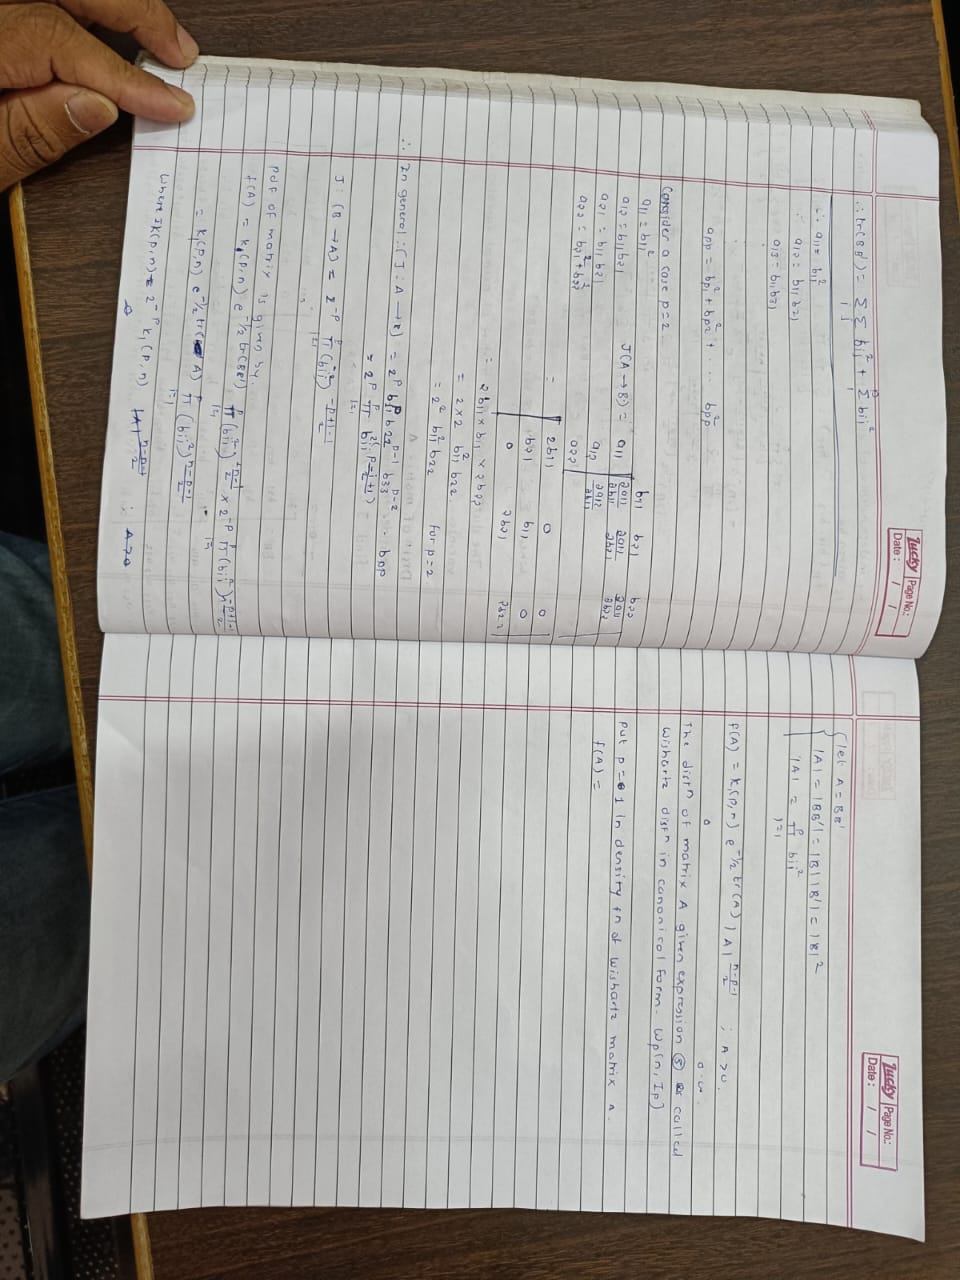 Lucky Page No.:
Date : / /
∴ tr(BB') = Σ_i Σ_j bij² + Σ_i^p bii²
∴ a11 = b11²
∴ a12 = b11 b21
a13 = b11 b31
app = bp1² + bp2² + .... bpp²
Consider a case p=2.
a11 = b11²
a12 = b11 b21
a21 = b11 b21
a22 = b21² + b22²
J(A → B) =
b11 b21 b22
a11 | ∂a11/∂b11 ∂a11/∂b21 ∂a11/∂b22 |
a12 | ∂a12/∂b11
a22
= | 2b11 0 0 |
| b21 b11 0 |
| 0 2b21 2b22 |
= 2b11 × b11 × 2b22
= 2×2 b11² b22.
= 2² b11² b22 for p=2
∴ In general : (J : A → B) = 2^p b11^p b22^(p-1) b33^(p-2) .. bpp
= 2^p ∏_(i=1)^p bii^2((p-i+1)/2)
J : (B → A) = 2^-p ∏_(i=1)^p (bii²)
pdf of matrix is given by.
f(A) = k1(p,n) e^(-1/2 tr(BB')) ∏_(i=1)^p (bii²) × 2^-p ∏^p (bii²)
= k1(p,n) e^(-1/2 tr( A)) ∏_(i=1)^p (bii²)^((n-p-1)/2)
Where k(p,n) = 2^-p k1(p,n)
Lucky Page No.:
Date : / /
let A = BB'
|A| = |BB'| = |B| |B'| = |B|²
|A| = ∏_(i=1)^p bii²
f(A) = k1(p,n) e^(-1/2 tr(A)) |A|^((n-p-1)/2) ; A > 0.
The distⁿ of matrix A given expression ⑤ is called
Wishartz distⁿ in canonical form. Wp(n, Ip)
Put p = 1 in density fn of wishartz matrix A.
f(A) =